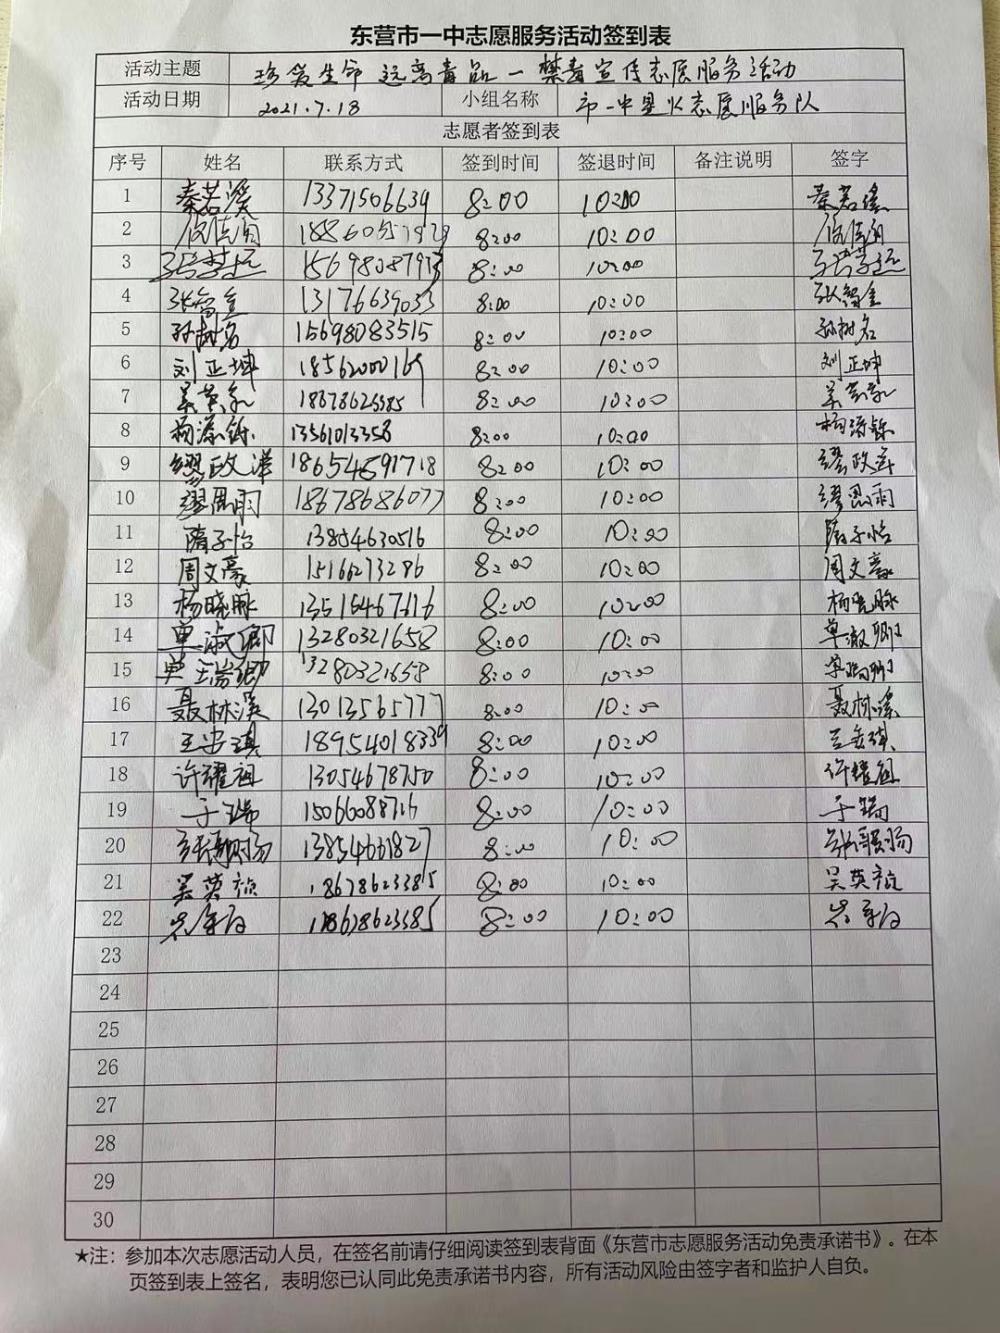 东营市一中志愿服务活动签到表
活动主题 珍爱生命 远离毒品—禁毒宣传志愿服务活动
活动日期 2021.7.18 小组名称 市一中星火志愿服务队
志愿者签到表
序号 姓名 联系方式 签到时间 签退时间 备注说明 签字
1 秦若溪 13371506639 8:00 10:00
2 8:00 10:00
3 8:00 10:00
4 13176639033 8:00 10:00
5 孙树名 15698083515 8:00 10:00 孙树名
6 刘正坤 8:00 10:00 刘正坤
7 8:00 10:00
8 13561013358 8:00 10:00
9 缪政洋 18654591718 8:00 10:00
10 缪思雨 18678686077 8:00 10:00 缪思雨
11 隋子怡 13854630516 8:00 10:00 隋子怡
12 周文豪 15166273286 8:00 10:00 周文豪
13 杨晓脉 8:00 10:00 杨晓脉
14 单淑卿 13280321658 8:00 10:00 单淑卿
15 单瑞卿 13280321658 8:00 10:00 单瑞卿
16 聂林溪 13013565777 8:00 10:00 聂林溪
17 王安琪 18954018339 8:00 10:00 王安琪
18 许耀祖 13054678750 8:00 10:00 许耀祖
19 于瑞 15066088716 8:00 10:00 于瑞
20 8:00 10:00
21 吴英 8:00 10:00 吴英
22 8:00 10:00
23
24
25
26
27
28
29
30
★注：参加本次志愿活动人员，在签名前请仔细阅读签到表背面《东营市志愿服务活动免责承诺书》。在本
页签到表上签名，表明您已认同此免责承诺书内容，所有活动风险由签字者和监护人自负。